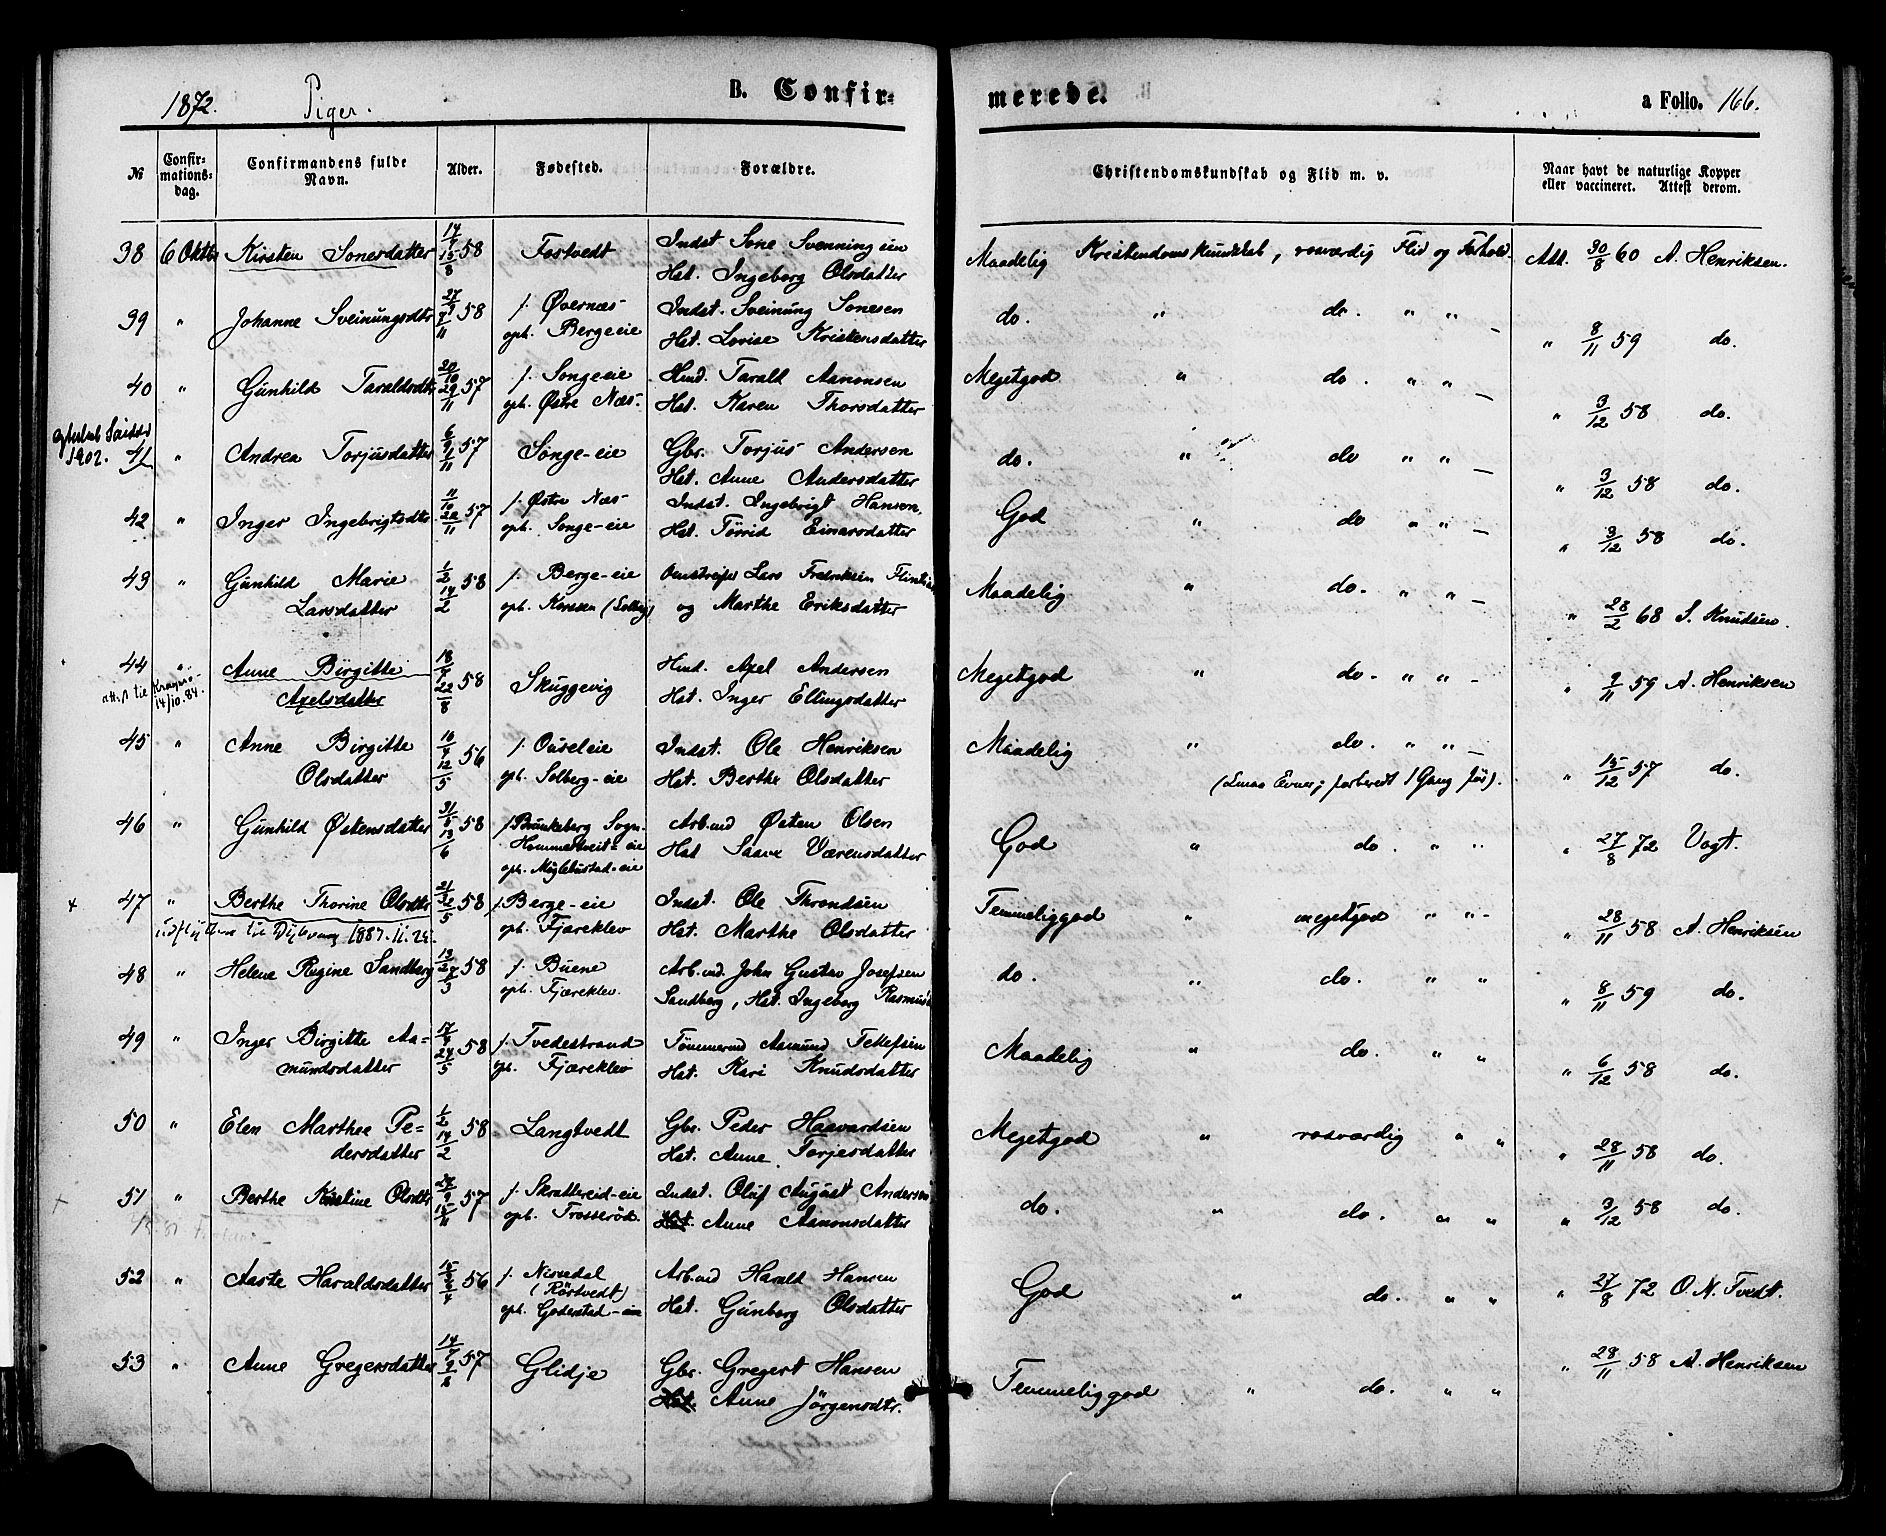 1872. Piger. B. Confirmerede. a Folio. 166.
№ Confirmationsdag. Confirmandens fulde Navn. Alder. Fødested. Forældre. Christendomskundskab og Flid m. v. Naar havt de naturlige Kopper eller vaccineret. Attest derom.
38 6 Oktbr Kirsten Sonesdatter 14/7 15/8 58 Fostvedt Indst Sone Svenning
Hst. Ingeborg Olsdatter Maadelig Kristendomskundskab, rosværdig Flid og Forhold Att. 30/8 60 A. Henriksen.
39 " Johanne Sveinungsdtr 58 f. Øvernæs- Indst. Sveinung Sonesen
oph. Berge-eie Hst. Lovise Kristensdatter do. " do. " " " 8/11 59 do.
40 " Gunhild Taraldsdtr 20/10 29/11 57 f. Songe-eie Hmd. Tarald Aanonsen
oph. Østre Næs- Hst. Karen Thorsdatter Megetgod " do. " " " 3/12 58 do.
1902. 41 " Andrea Torjusdatter 6/9 57 Songe-eie Gbr. Torjus Andersen
Hst. Anne Andersdatter do. " do " " " 3/12 58 do.
42 " Inger Ingebrigtsdtr 11/10 22/11 57 f. Østre Næs- Indst. Ingebrigt Hansen,
oph. Songe-eie Hst. Torrid Einarsdatter God " do " " " 3/12 58 do.
43 " Gunhild Marie 1/2 14/2 58 f. Berge-eie Omstreifer Lars Fredriksen
Larsdatter oph. (Solberg) og Marthe Eriksdatter Maadelig " do. " " " 28/2 68 S. Knudsen.
44 " Anne Birgitte 18/7 22/8 58 Skuggevig Hmd. Axel Andersen
att. f til Kragerø 14/10. 84. Axelsdatter Hst. Inger Ellingsdatter Megetgod " do. " " " 9/11 59 A. Henriksen
45 " Anne Birgitte 10/4 12/5 56 f. Ousel eie Indst. Ole Henriksen Maadelig " do. " "
Olsdatter oph. Solberg-eie Hst. Berthe Olsdatter (Smaa Evner; forberedt 1 Gang før). " 15/12 57 do.
46 " Gunhild Østensdatter 31/5 13/6 58 f. Brunkeberg Sogn. Arb.md Østen Olsen
Hommetveit-eie Hst Saave Værensdatter God " do. " " " 27/8 72 Vogt.
oph. Møglebustad-eie
+ 47 " Berthe Thorine Olsdtr 58 f. Berge-eie Indst. Ole Throndsen Temmeliggod " megetgod " " " 28/11 58 A. Henriksen
til Dybvaag 1887. oph. Fjæreklev Hst. Marthe Olsdatter
48 " Helene Regine Sandberg 58 f. Buene Arb.md. John Gustav Josefsen do. " do. " "
oph. Fjæreklev. Sandberg, Hst. Ingeborg " 8/11 59 do.
49 " Inger Birgitte Aa- 17/4 24/5 58 f. Tvedestrand Tømmermd Aamund Tellefsen
mundsdatter op. Fjæreklev Hst. Kari Knudsdatter Maadelig " do. " " " 6/12 58 do.
50 " Elen Marthee Pe- 1/2 14/2 58 Langtvedt Gbr. Peder Haavardsen Megetgod " rosværdig " "
dersdatter Hst. Anne Torjesdatter " 28/11 58 do.
+ 51 " Berthe Kristine Olsdtr 57 f. Skrattereid-eie Indst. Oluf August Andersen do. " do. " " " 3/12 58 do.
oph. Trosserød Hst. Anne Aanonsdatter
52 " Aaste Haraldsdatter 56 f. Nissedal Arb.md Harald Hansen
(Rörtvedt) God " do. " " " 27/8 72 O. N. Tvedt.
oph. Goderstad-eie Hst. Gunborg Olsdatter
53 " Anne Gregersdatter 57 Glidje Gbr. Gregert Hansen
Hst. Anne Jörgensdtr. Temmeliggod " do. " " " 28/11 58 A. Henriksen